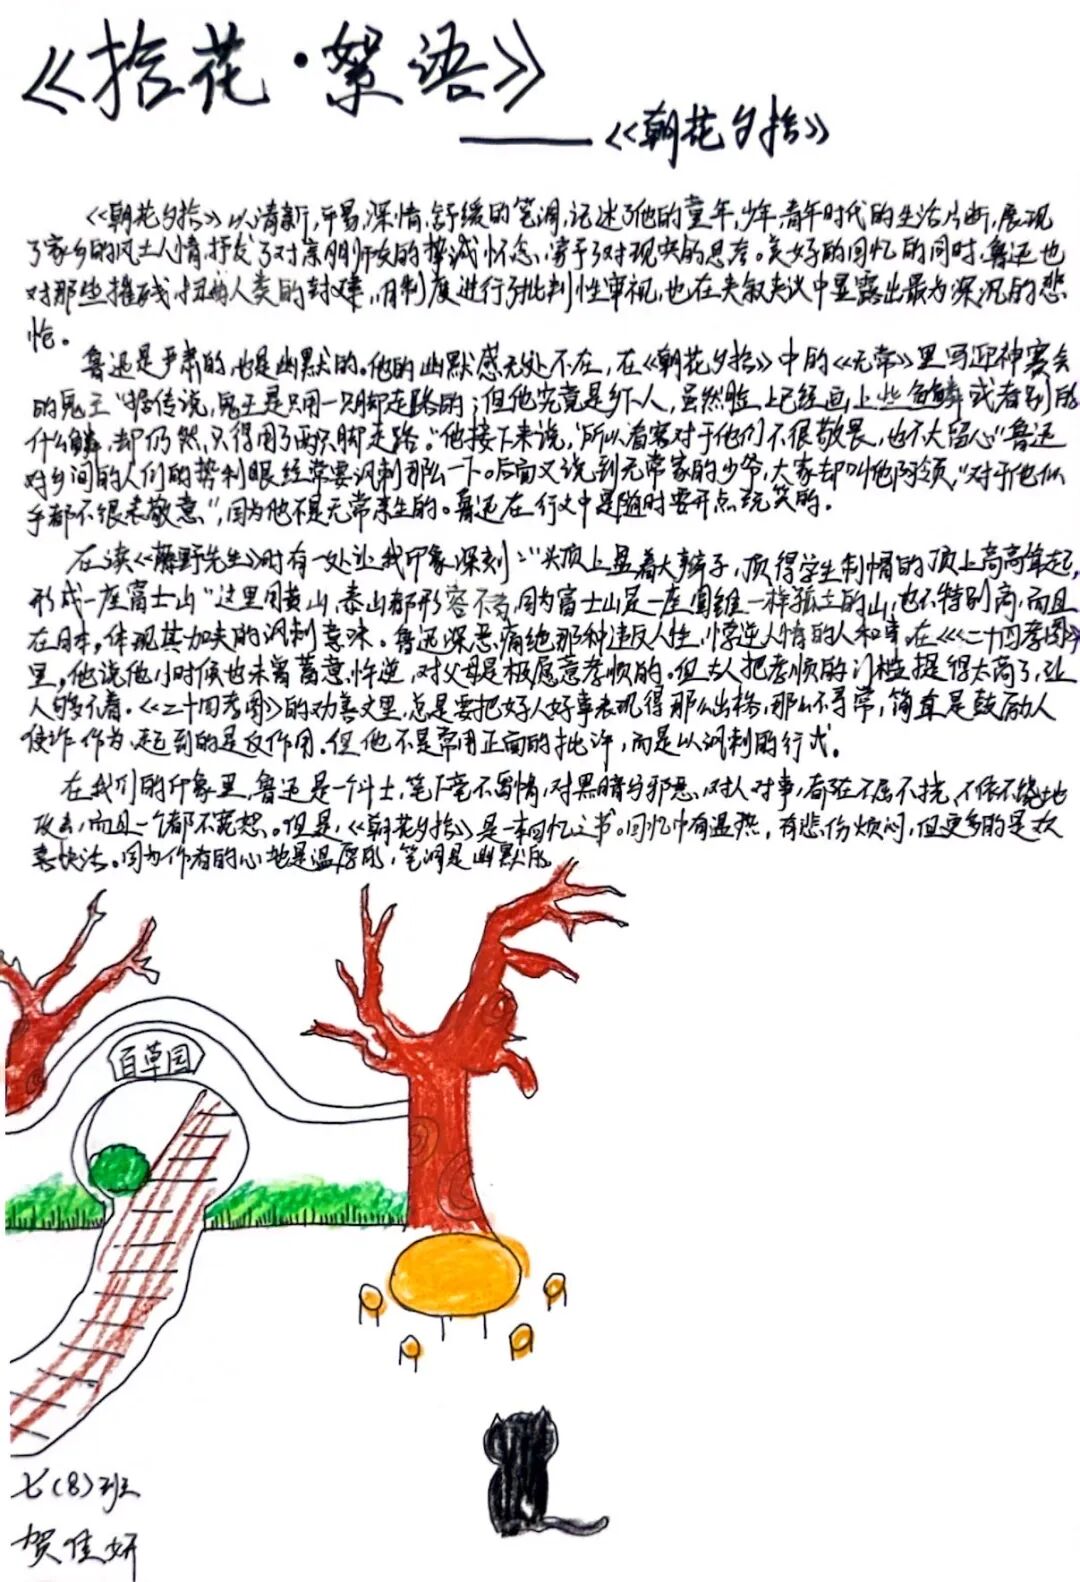 《拾花·絮语》
——《朝花夕拾》
《朝花夕拾》以清新,平易,深情,舒缓的笔调,记述了他的童年,少年,青年时代的生活片断,展现
了家乡的风土人情,抒发了对亲朋师友的挚诚怀念,寄予了对现实的思考。美好的回忆的同时,鲁迅也
对那些摧残,扭曲人类的封建,旧制度进行了批判性审视,也在夹叙夹议中显露出最为深沉的悲
怆。
鲁迅是严肃的,也是幽默的。他的幽默感无处不在,在《朝花夕拾》中的《无常》里写迎神赛会
的鬼王“据传说,鬼王是只用一只脚走路的;但他究竟是乡下人,虽然脸上已经画上些鱼鳞或者别的
什么鳞,却仍然只得用了两只脚走路。”他接下来说,“所以看客对于他们不很敬畏,也不大留心”鲁迅
对乡间的人们的势利眼经常要讽刺那么一下。后面又说到无常家的少爷,大家却叫他阿领,“对于他似
乎都不很表敬意”,因为他不是无常亲生的。鲁迅在行文中是随时要开点玩笑的。
在读《藤野先生》时有一处让我印象深刻:“头顶上盘着大辫子,顶得学生制帽的顶上高高耸起,
形成一座富士山”这里用黄山,泰山都形容不夸,因为富士山是一座圆锥一样孤立的山,也不特别高,而且
在日本,体现其加夹的讽刺意味。鲁迅深恶痛绝那种违反人性,悖逆人情的人和事。在《《二十四孝图》
里,他说他小时候也未尝蓄意忤逆,对父母是极愿意孝顺的。但古人把孝顺的门槛提得太高了,让
人够不着。《二十四孝图》的劝善文里,总是要把好人好事表现得那么出格,那么不寻常,简直是鼓励人
使诈作伪,起到的是反作用。但他不是常用正面的批评,而是以讽刺的行式。
在我们的印象里,鲁迅是一个斗士,笔下毫不留情,对黑暗与邪恶,对人对事,都在不屈不挠,不依不饶地
攻击,而且一个都不宽恕。但是,《朝花夕拾》是一本回忆之书。回忆中有温热,有悲伤烦闷,但更多的是欢
喜快活。因为作者的心地是温厚的,笔调是幽默的
百草园
七(8)班
贺佳妍